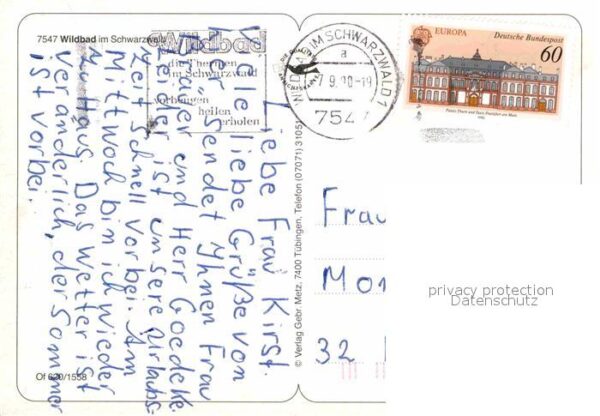 7547 Wildbad im Schwarzwald
Wildbad
die Thermen
im Schwarzwald
vorbeugen
heilen
erholen
WILDBAD IM SCHWARZWALD 1
a
9.90-19
7547
EUROPA
Deutsche Bundespost
60
Palais Thurn und Taxis, Frankfurt am Main
1990
Liebe Frau Kirst.
Viele liebe Grüße von
hier sendet Ihnen Frau
und Herr Goedeke.
Leider ist unsere Urlaubs-
Zeit schnell vorbei. Am
Mittwoch bin ich wieder
zu Haus. Das Wetter ist
veränderlich, der Sommer
ist vorbei.
© Verlag Gebr. Metz, 7400 Tübingen, Telefon (07071) 3105
Frau
Mon
32
privacy protection
Datenschutz
Of 620/1558